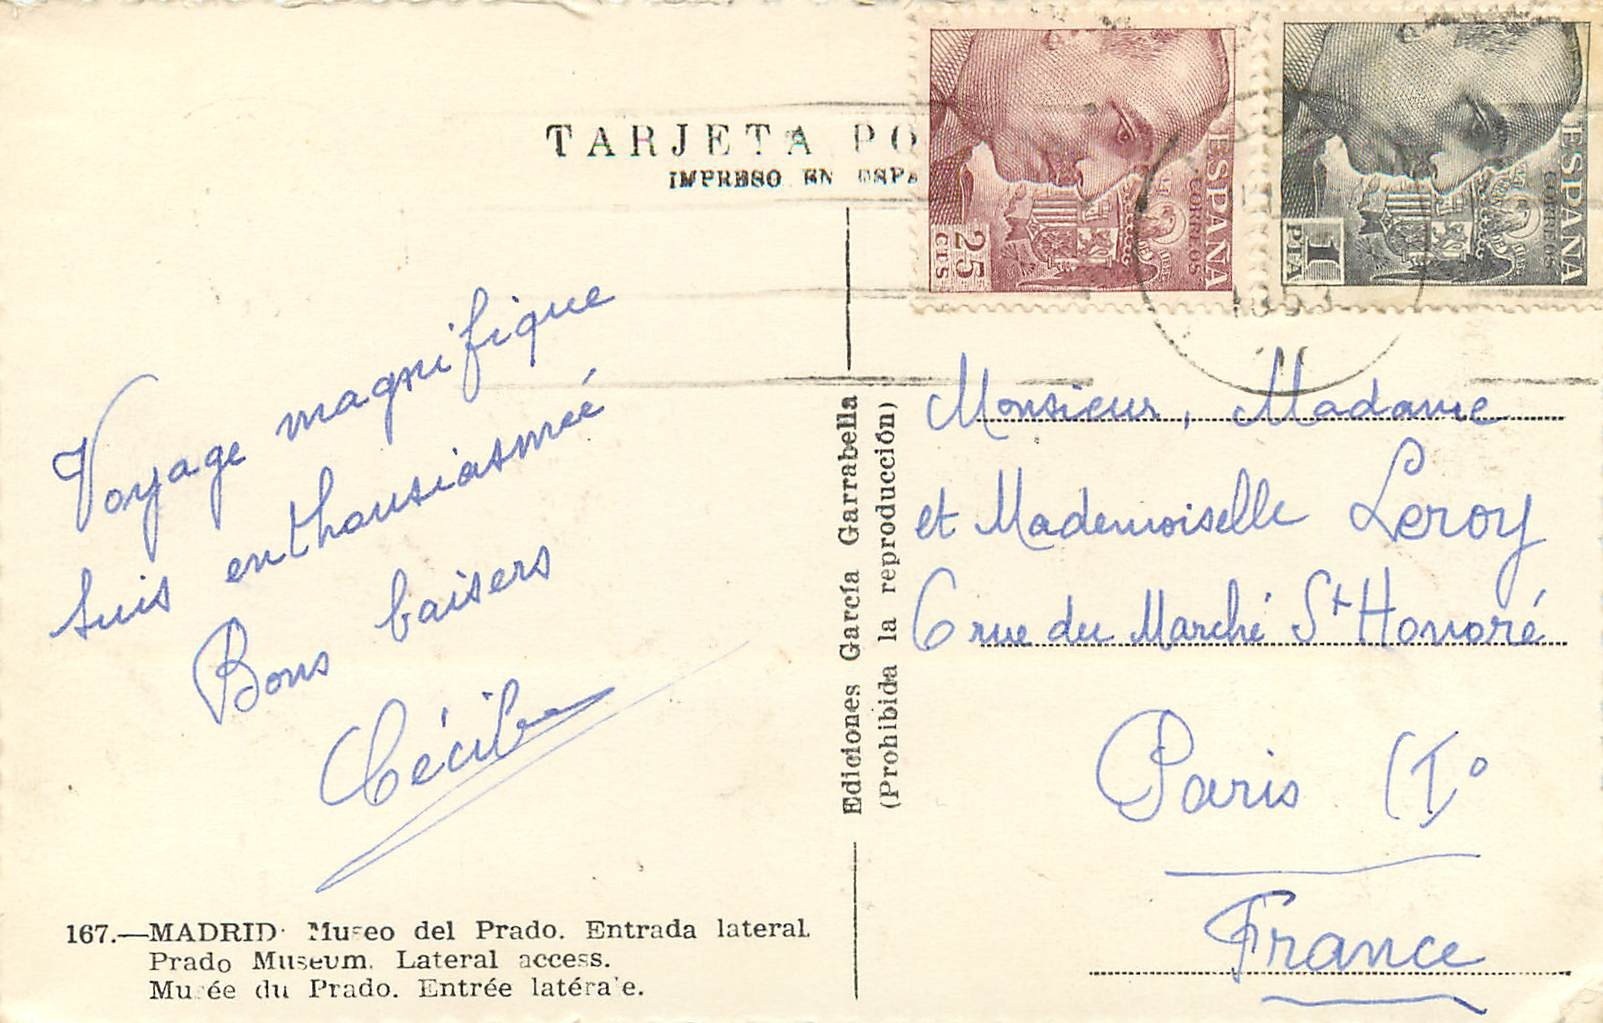 TARJETA PO
IMPRESO EN ESPA
ESPAÑA
CORREOS
25
CTS
ESPAÑA
CORREOS
1
PTA
Voyage magnifique
suis enthousiasmée
Bons baisers
Cécile
Ediciones García Garrabella
(Prohibida la reproducción)
Monsieur, Madame
et Mademoiselle Leroy
6 rue du Marché St Honoré
Paris (I°
France
167.—MADRID. Museo del Prado. Entrada lateral
Prado Museum. Lateral access.
Musée du Prado. Entrée latérale.